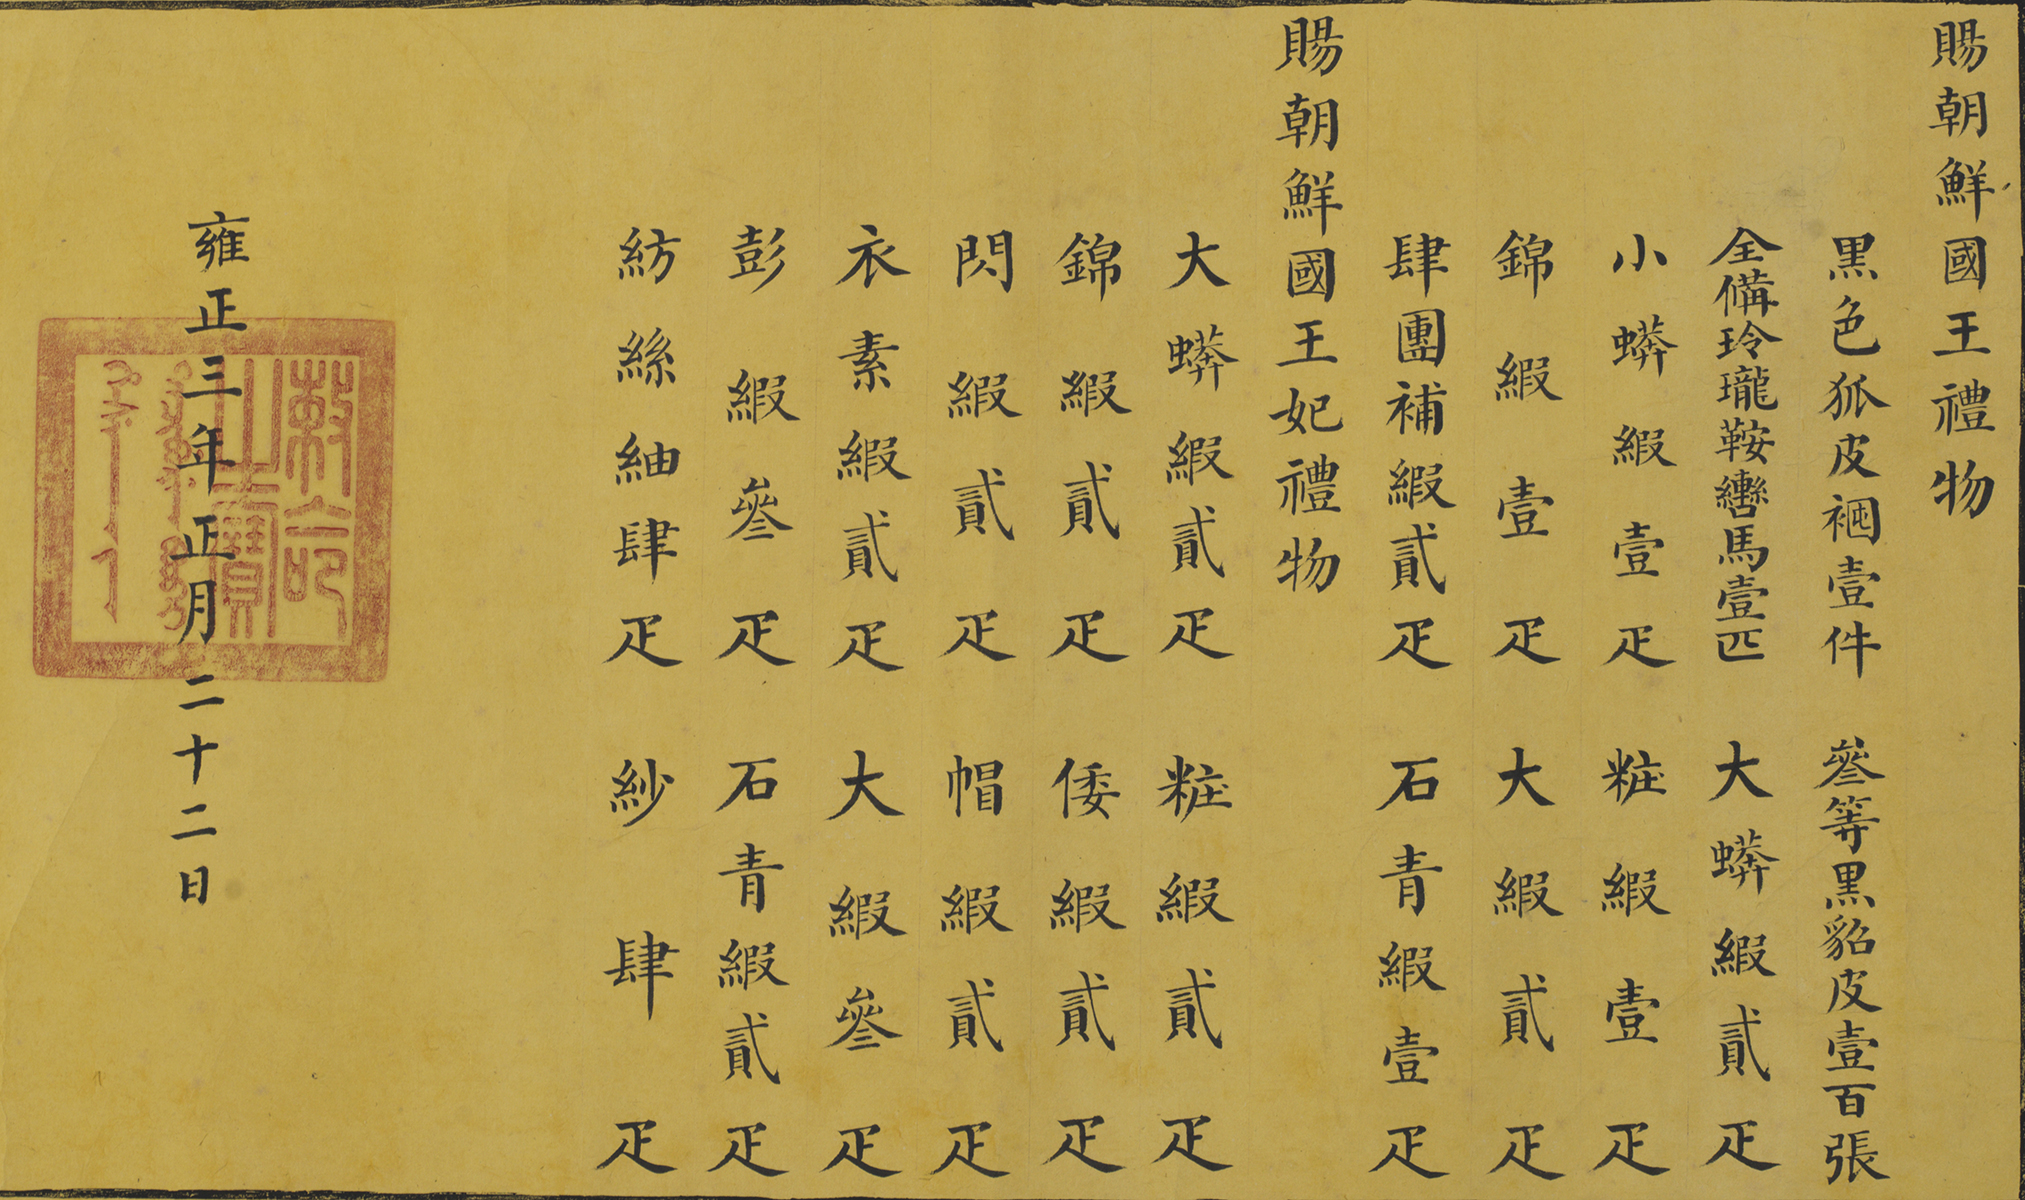 賜朝鮮國王禮物
黒色狐皮裀壹件 叄等黒貂皮壹百張
全備玲瓏鞍轡馬壹匹 大蟒緞貳疋
小蟒緞壹疋 粧緞壹疋
錦緞壹疋 大緞貳疋
肆團補緞貳疋 石青緞壹疋
賜朝鮮國王妃禮物
大蟒緞貳疋 粧緞貳疋
錦緞貳疋 倭緞貳疋
閃緞貳疋 帽緞貳疋
衣素緞貳疋 大緞叄疋
彭緞叄疋 石青緞貳疋
紡絲紬肆疋 紗肆疋
雍正三年正月二十二日
敕命之寶